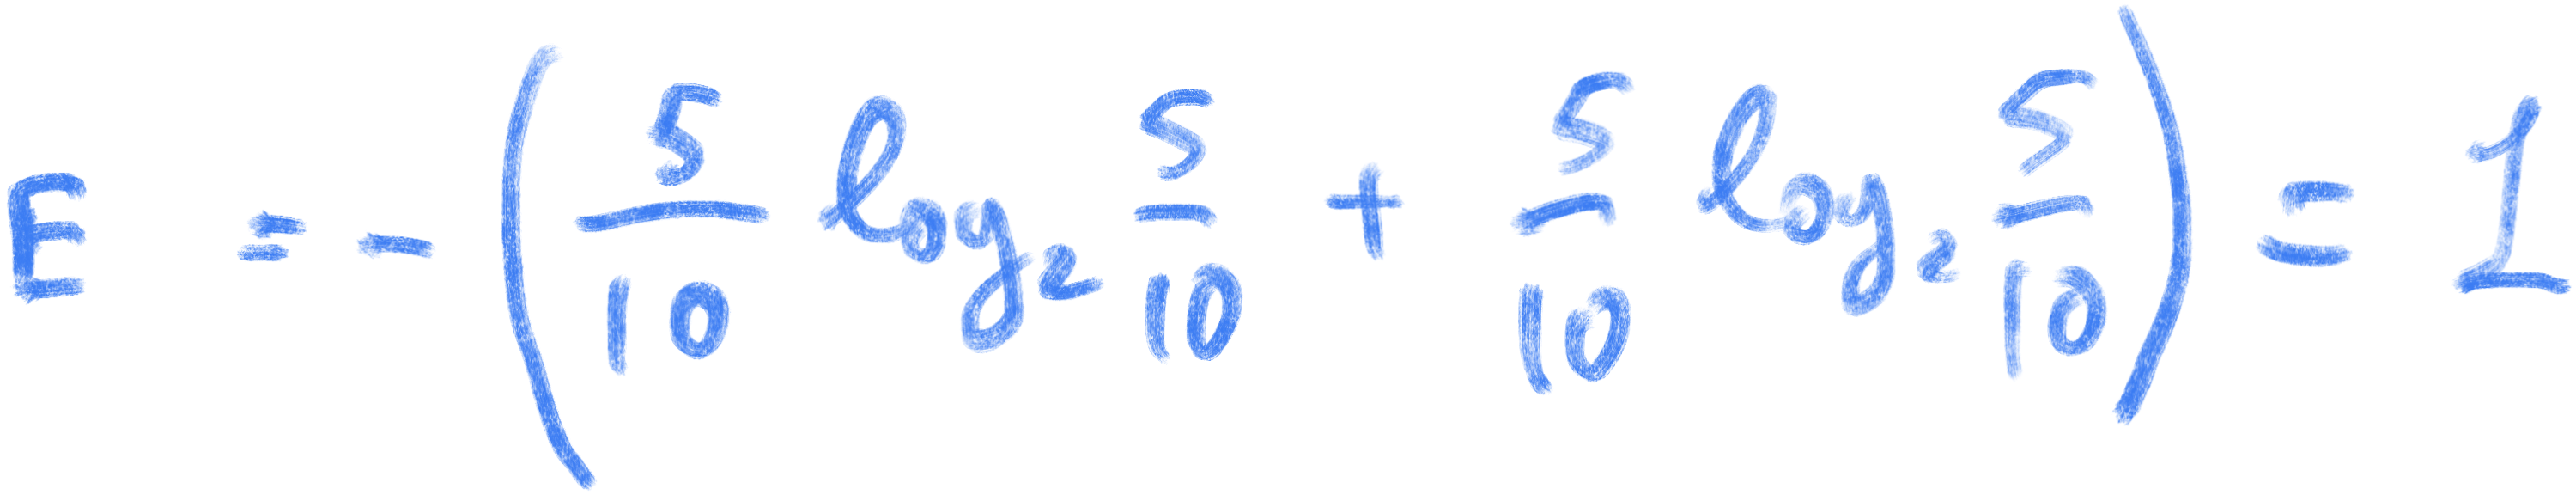 E = - ( 5/10 log₂ 5/10 + 5/10 log₂ 5/10 ) = 1